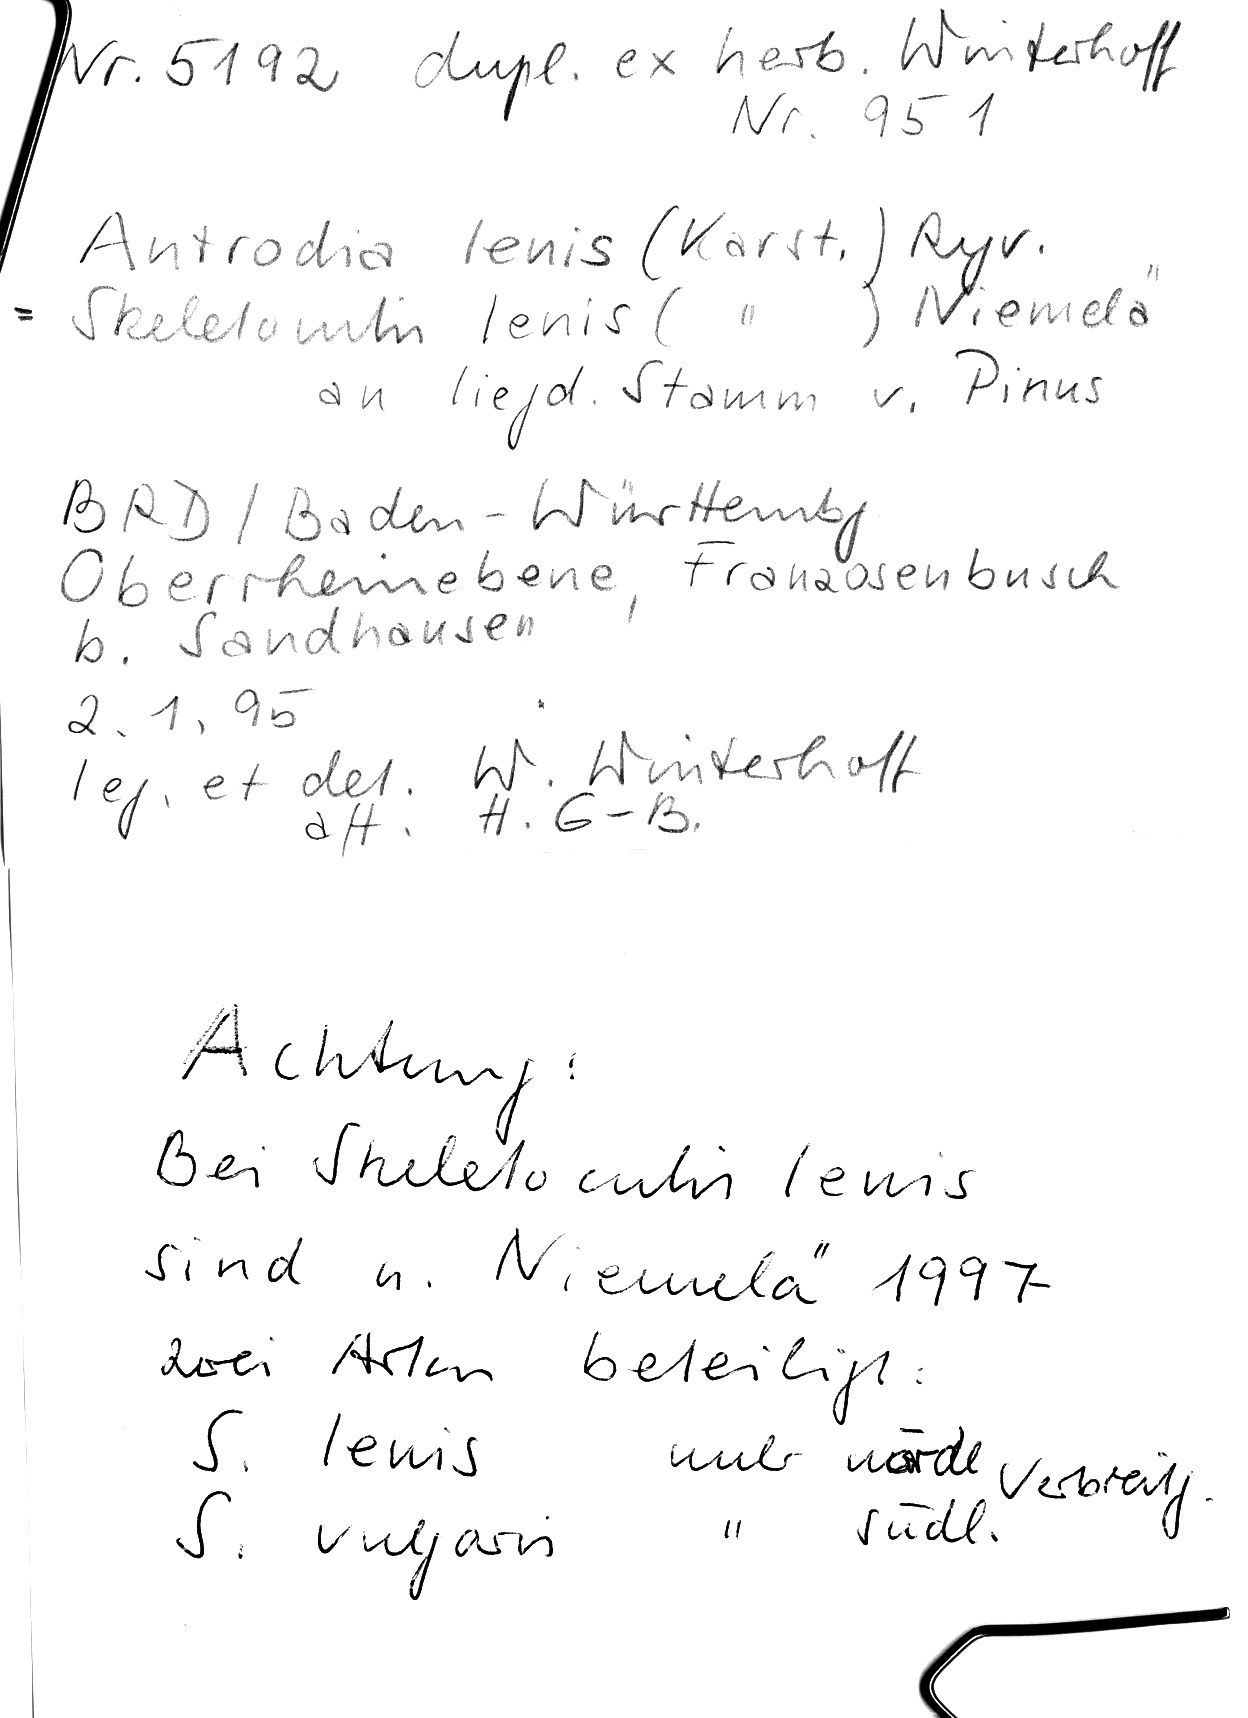 Nr. 5192 dupl. ex herb. Winterhoff
Nr. 951
Antrodia lenis (Karst.) Ryv.
= Skeletocutis lenis ( " ) Niemelä
an liegd. Stamm v. Pinus
BRD / Baden-Württembg
Oberrheinebene, Franzosenbusch
b. Sandhausen
2.1.95
leg. et det. W. Winterhoff
aff. H. G-B.
Achtung:
Bei Skeletocutis lenis
sind n. Niemelä 1997
zwei Arten beteiligt:
S. lenis mehr nördl Verbreitg.
S. vulgaris " südl.